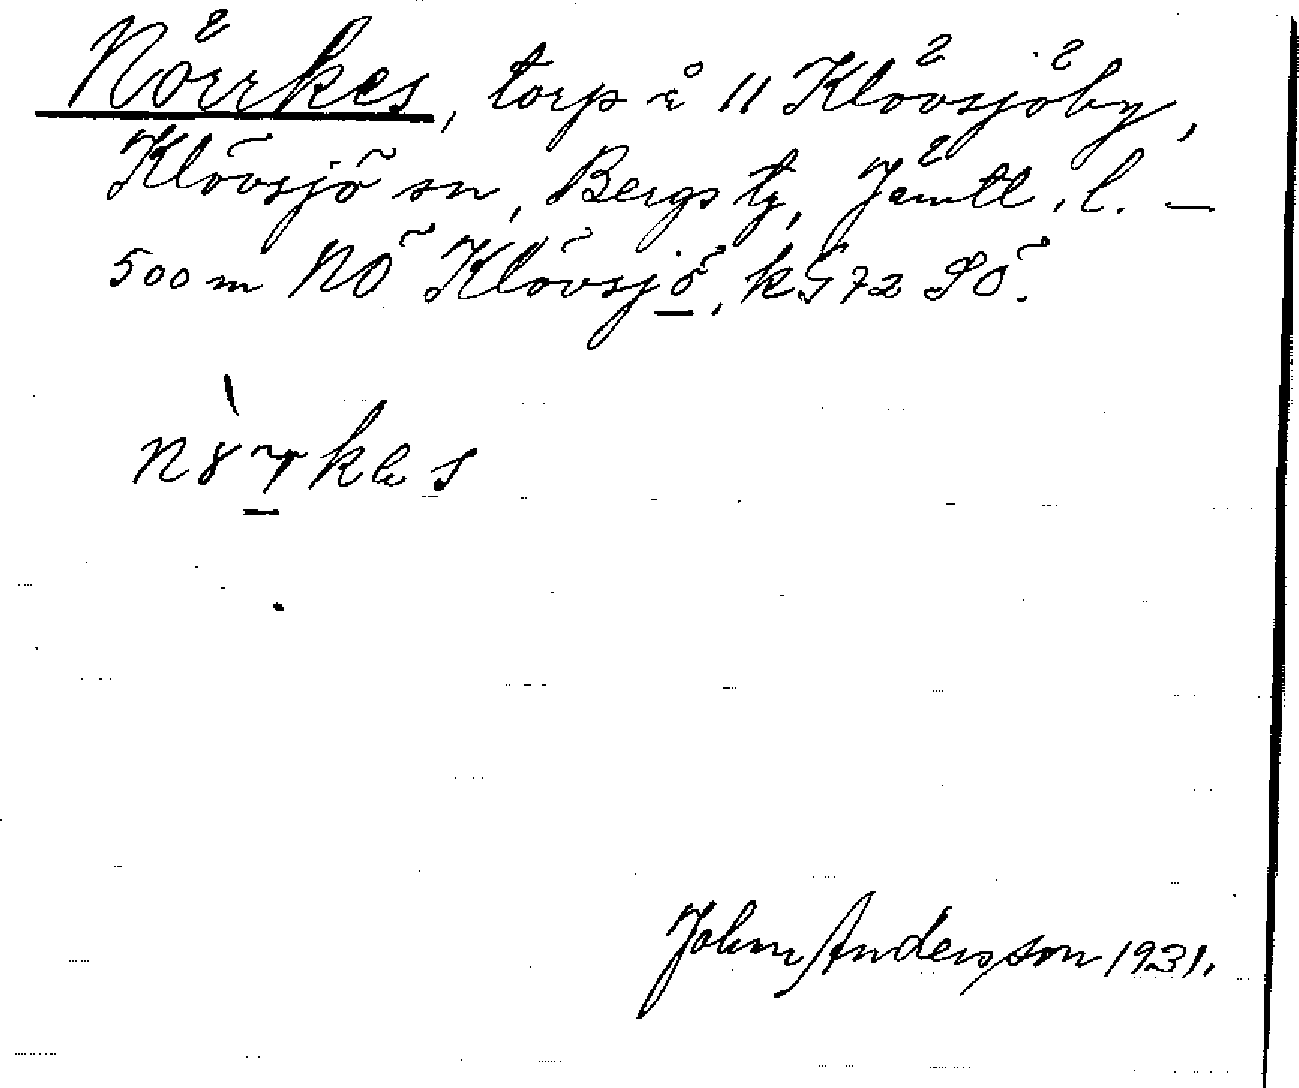 Nörrkes, torp å 11 Klövsjöby,
Klövsjö sn, Bergs tg, Jämtl. l. —
500 m NÖ Klövsjö, kG 72 SÖ.
John Andersson 1931.